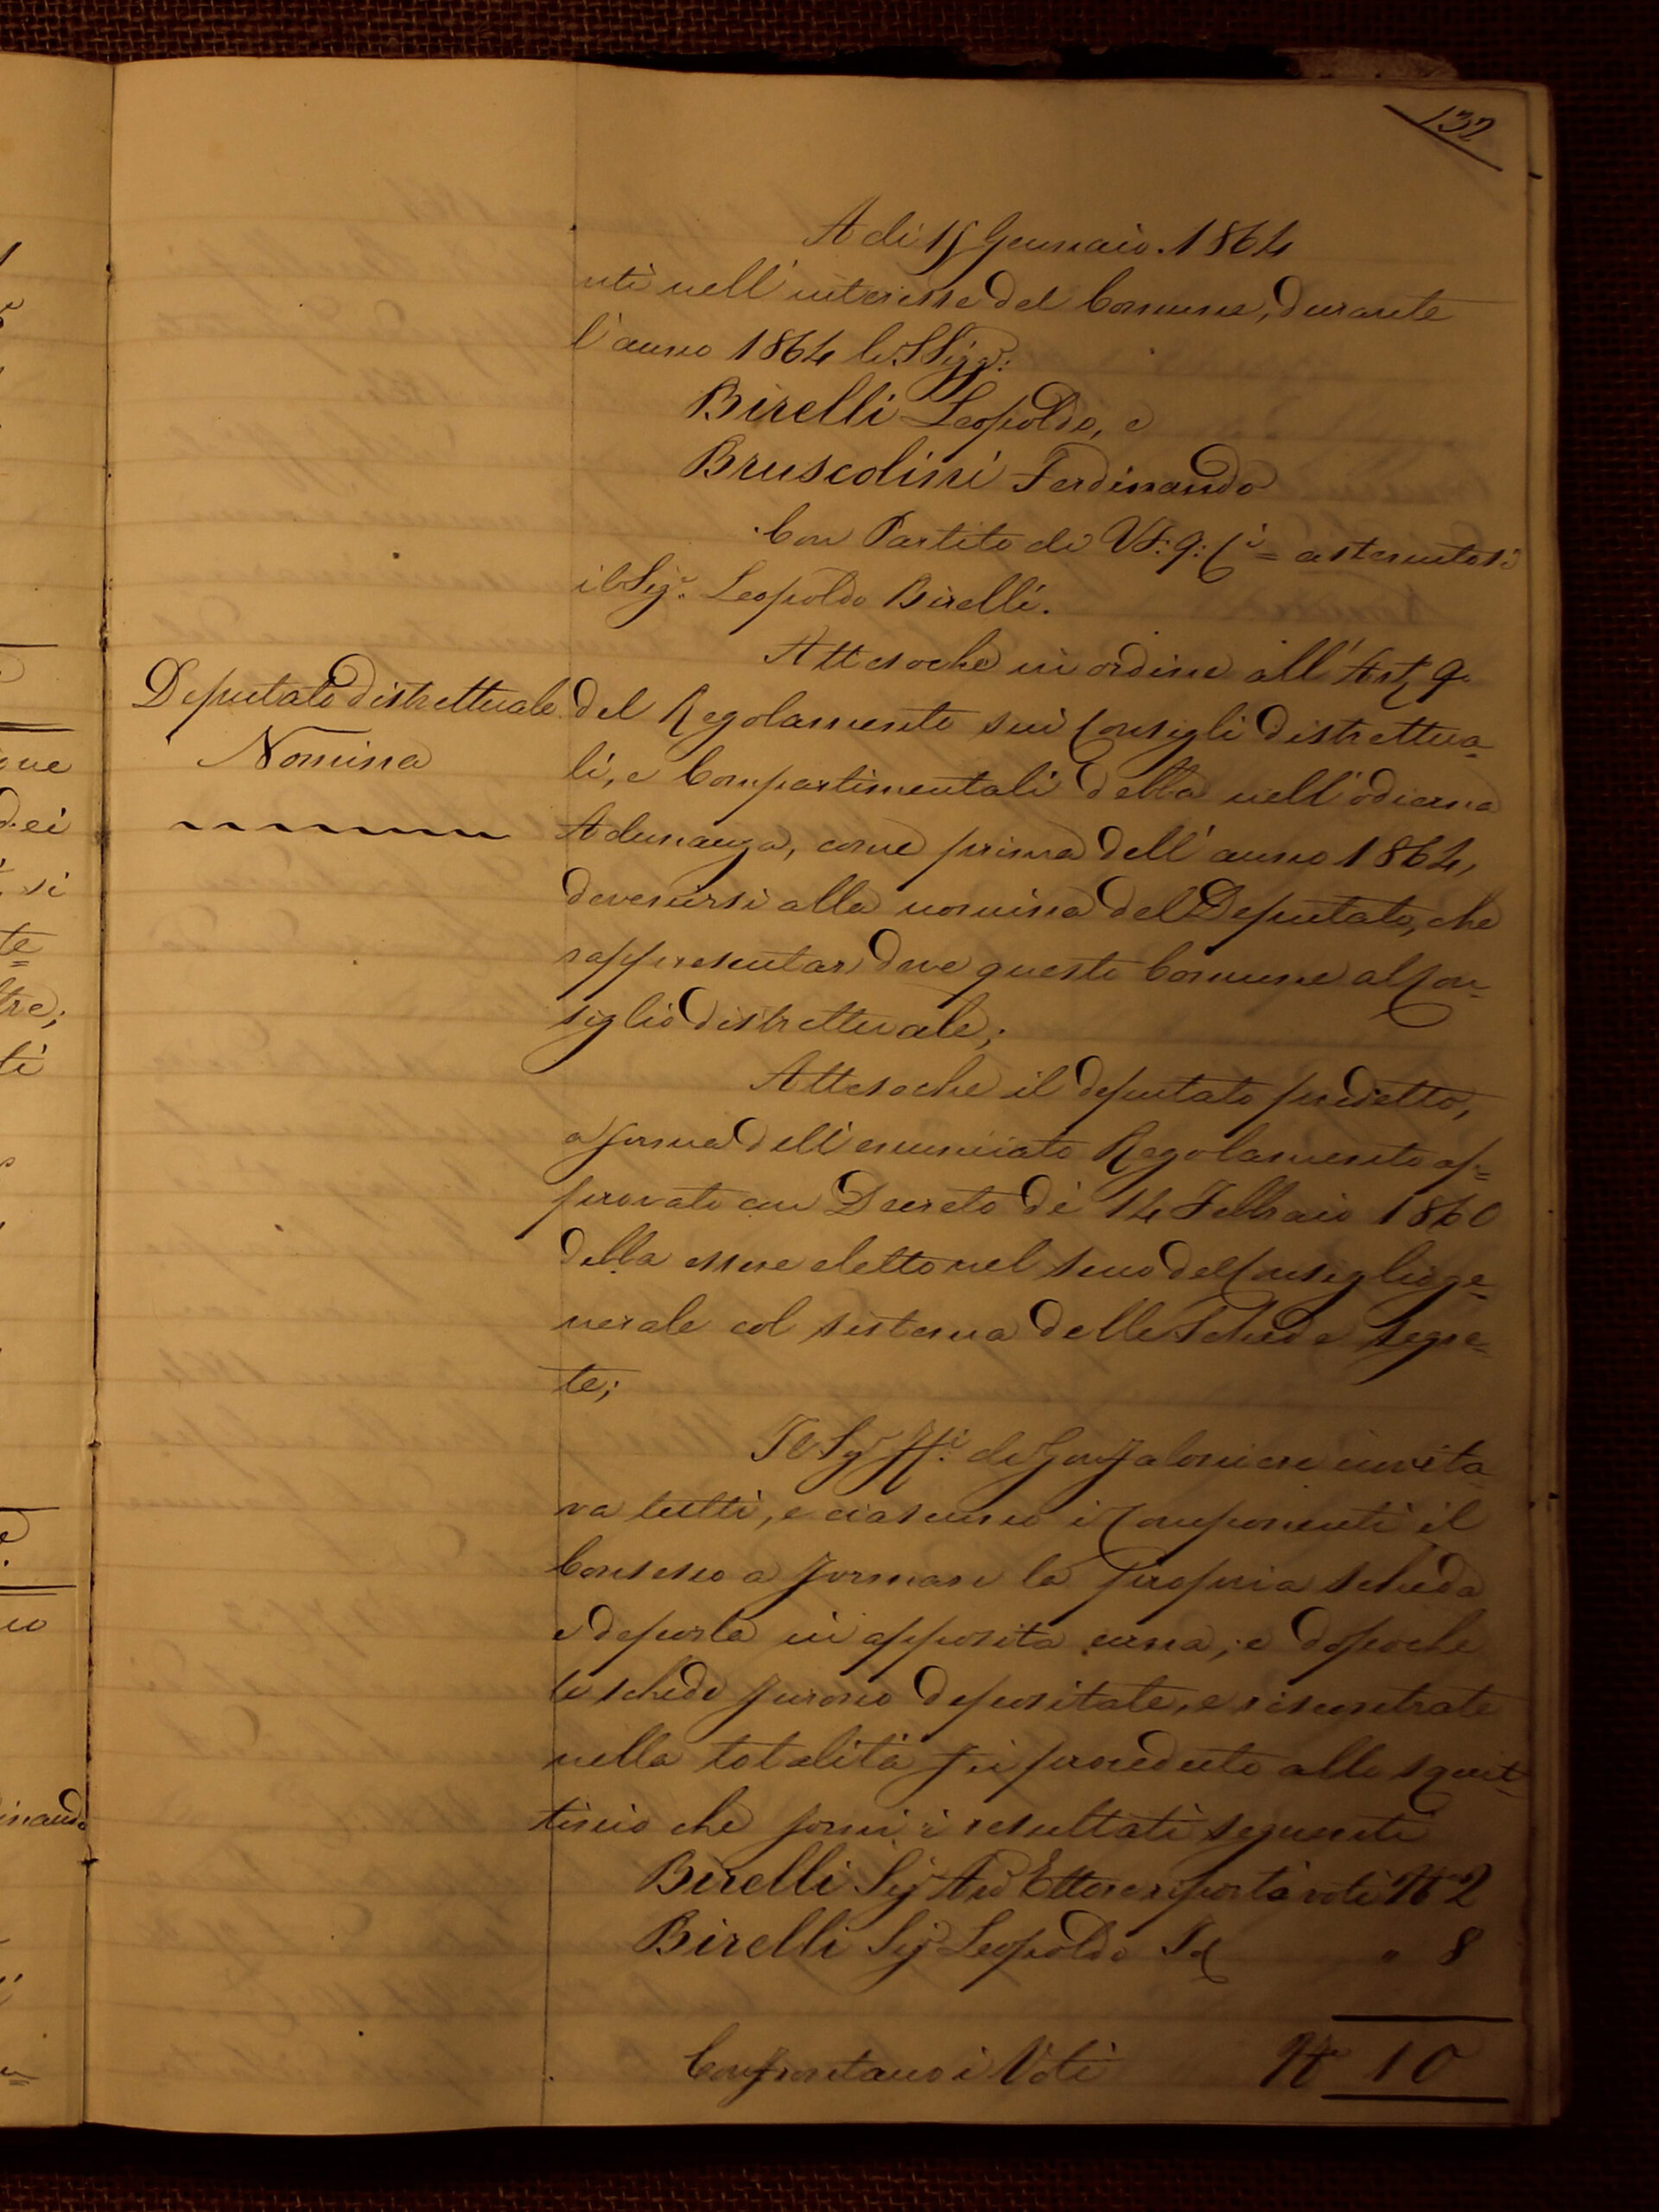 132
A di 15 Gennaio. 1864
nti nell'interesse del Comune, durante
l'anno 1864 li SSigg:ri
Birelli Leopoldo, e
Bruscolini Ferdinando
Con Partito di Vti: 9: fi = astenutosi
il Sig:r Leopoldo Birelli.
Attesochè in ordine all'Art. 9
Deputato distrettuale
Nomina
del Regolamento sui Consigli distrettua-
li, e Compartimentali debba nell'odierna
Adunanza, come prima dell'anno 1864,
devenirsi alla nomina del Deputato, che
rappresentar deve questo Comune al Con-
siglio distrettuale;
Attesochè il deputato predetto,
a forma dell'enunciato Regolamento ap-
provato con Decreto de' 14 Febbraio 1860
debba essere eletto nel seno del Consiglio ge-
nerale col sistema delle Schede segre-
te;
Il Sig:r ff:i di Gonfaloniere invita
va tutti, e ciascuno i Componenti il
Consesso a formare la propria scheda
e deporla in apposita urna; e dopochè
le schede furono depositate, e riscontrate
nella totalità fu proceduto allo squit-
tinio che fornì i resultati seguenti
Birelli Sig:r Avo Ettore riportò voti N° 2
Birelli Sig:r Leopoldo Id " 8
Confrontano i Voti N° 10